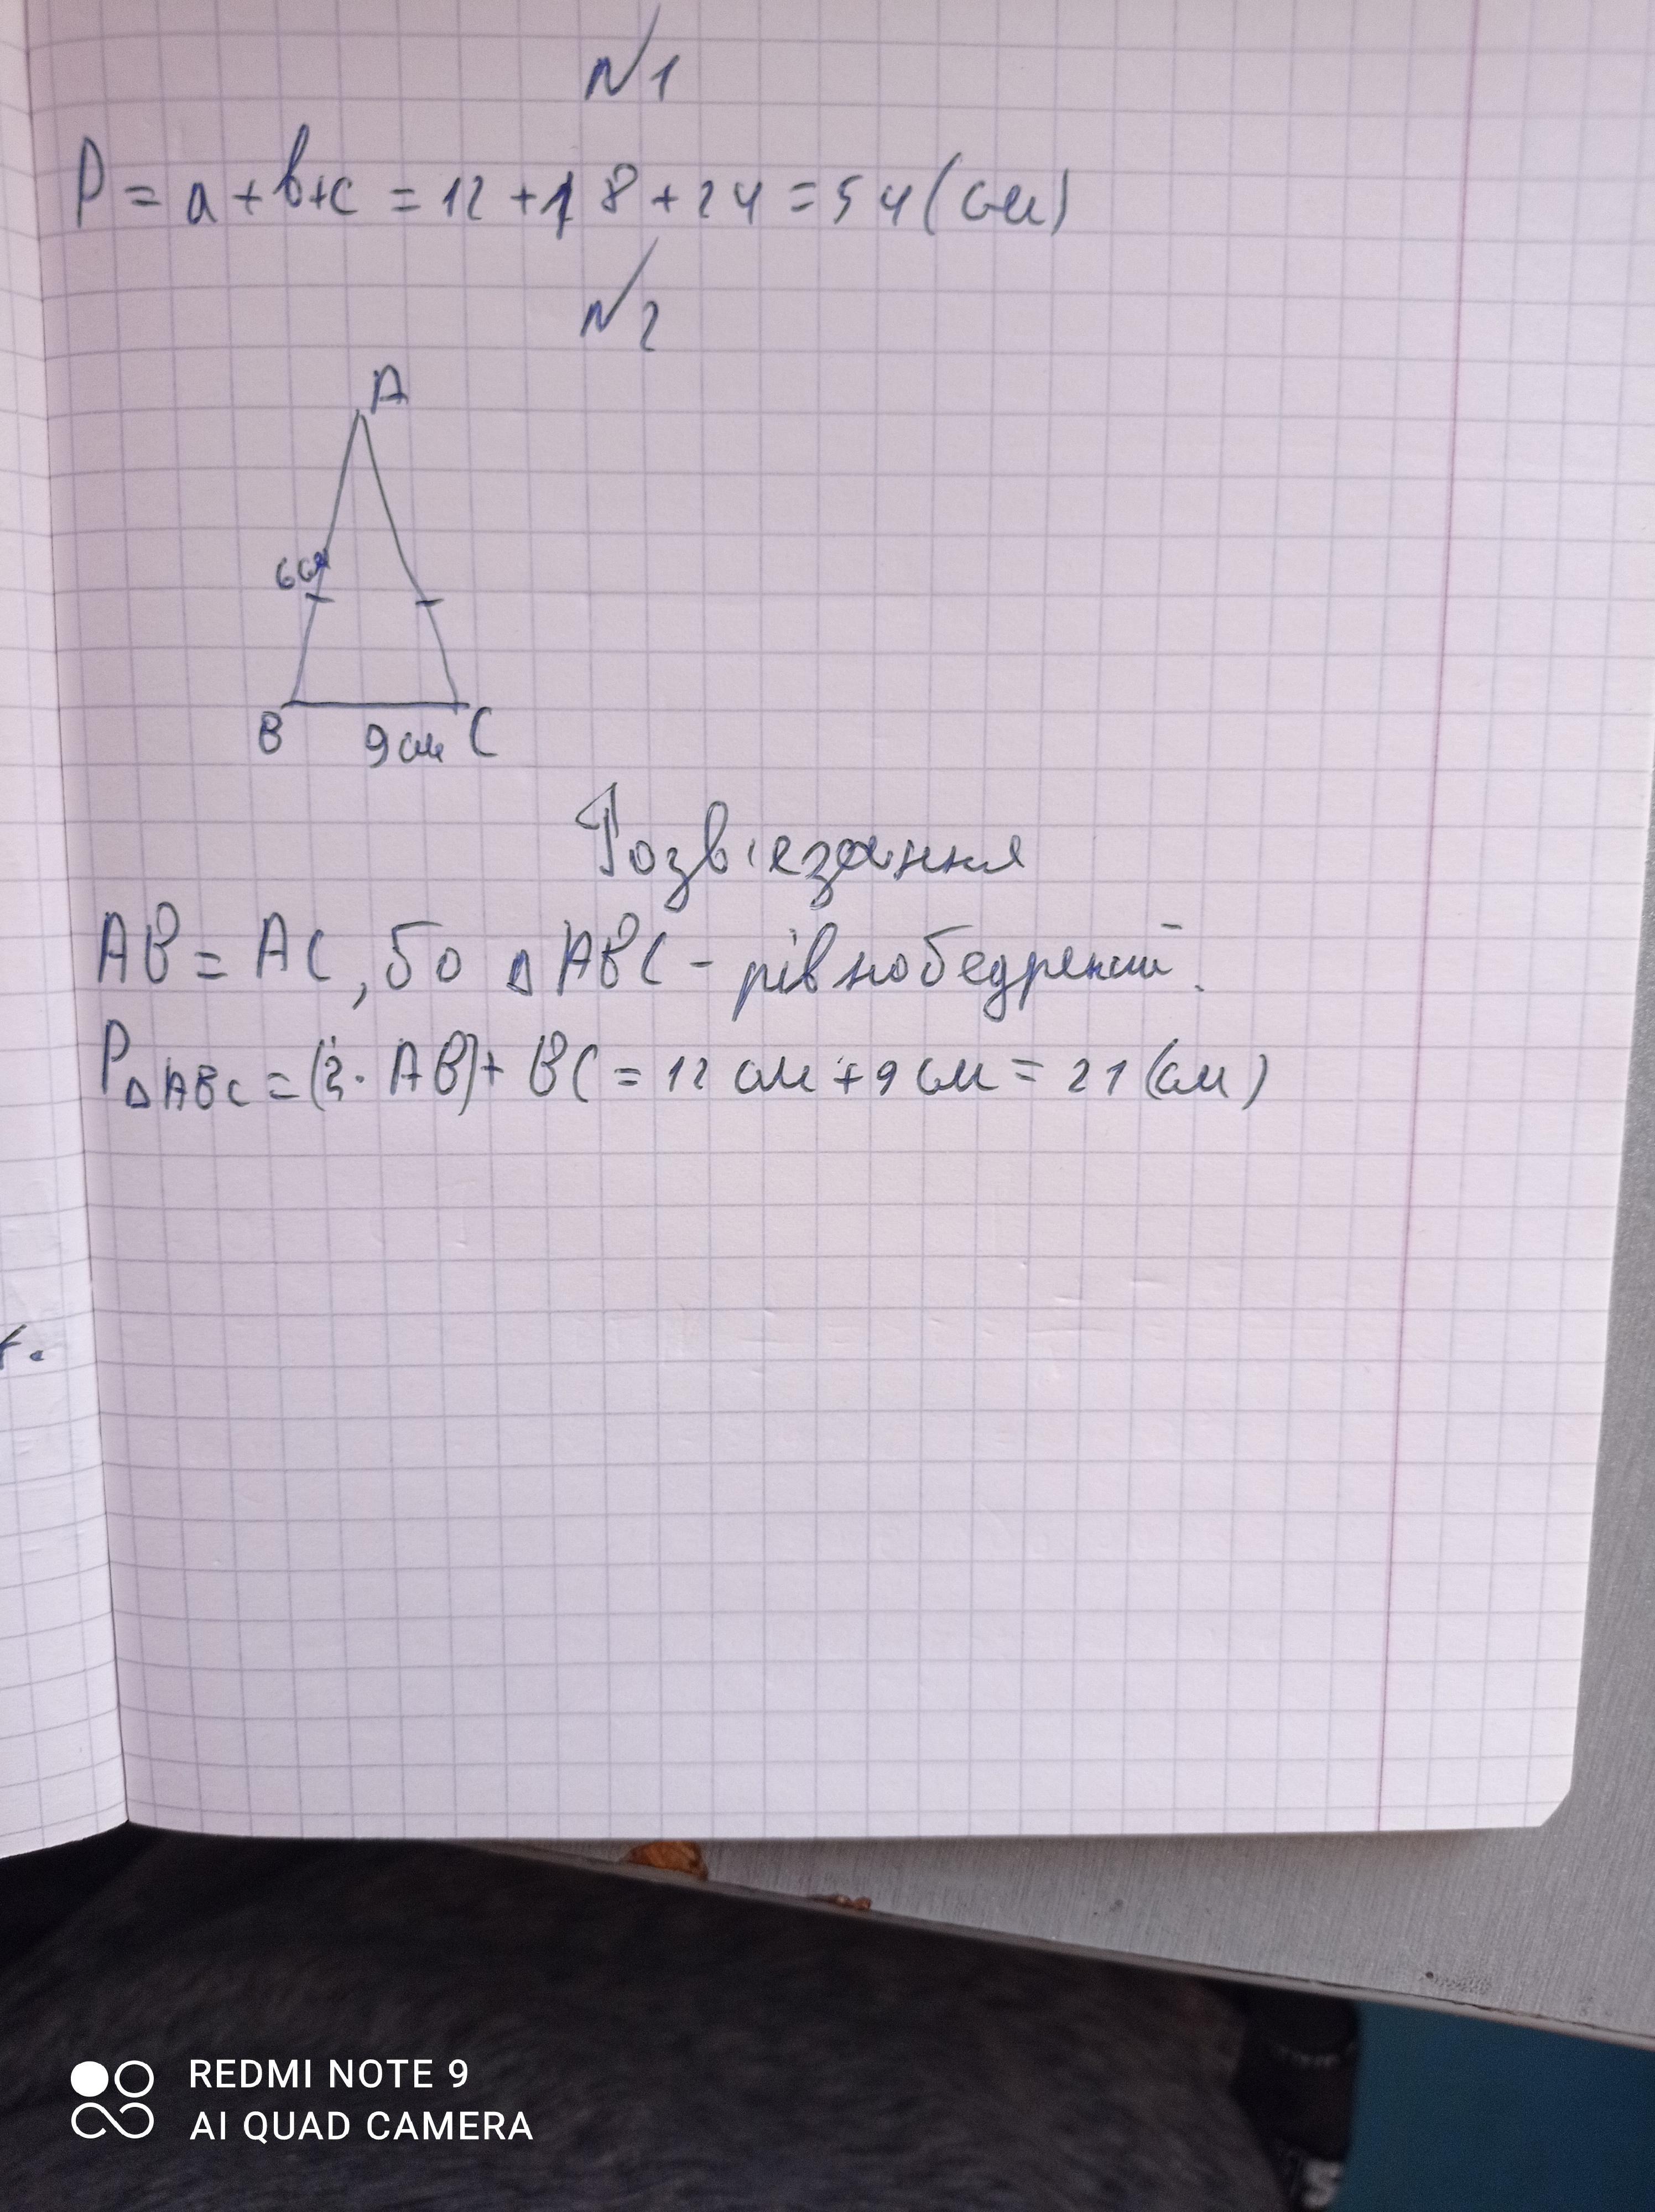 №1
P = a+b+c = 12 + 18 + 24 = 54 (см)
№2
A
6см
B 9 см C
Розв'язання
AB = AC, бо △ABC - рівнобедрений.
P△ABC = (2 · AB) + BC = 12 см + 9 см = 21 (см)
REDMI NOTE 9
AI QUAD CAMERA